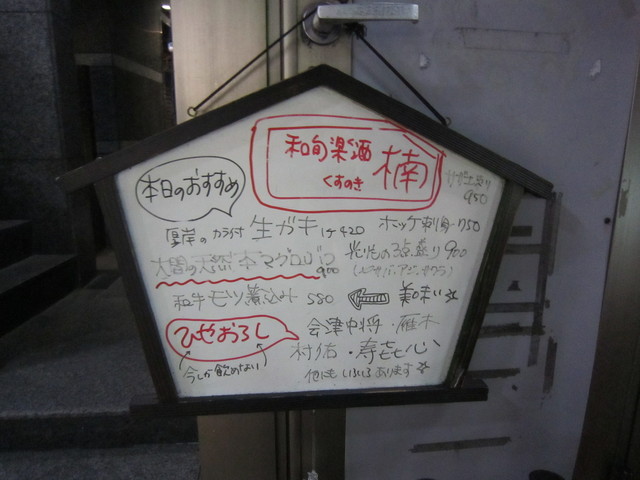 和旬楽酒
くすのき
楠
本日のおすすめ
950
厚岸の カラ付 生ガキ 1ヶ 420
ホッケ刺身 750
大間の天然本マグロ
900
光りもの3点盛り 900
和牛モツ煮込み 580
美味い☆
ひやおろし
今しか飲めない
会津中将・雁木
村祐・寿喜心
他にもいろいろあります☆